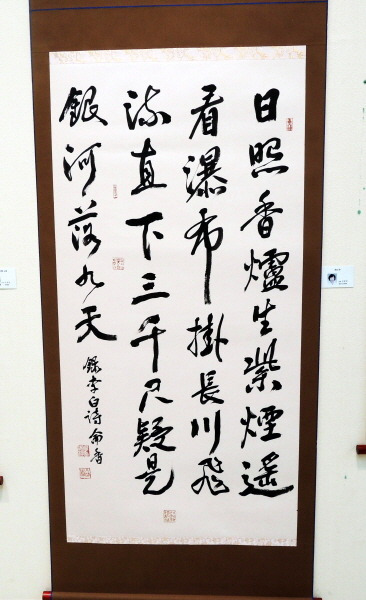 日照香爐生紫煙遙
看瀑布掛長川飛
流直下三千尺疑是
銀河落九天
錄李白詩 香